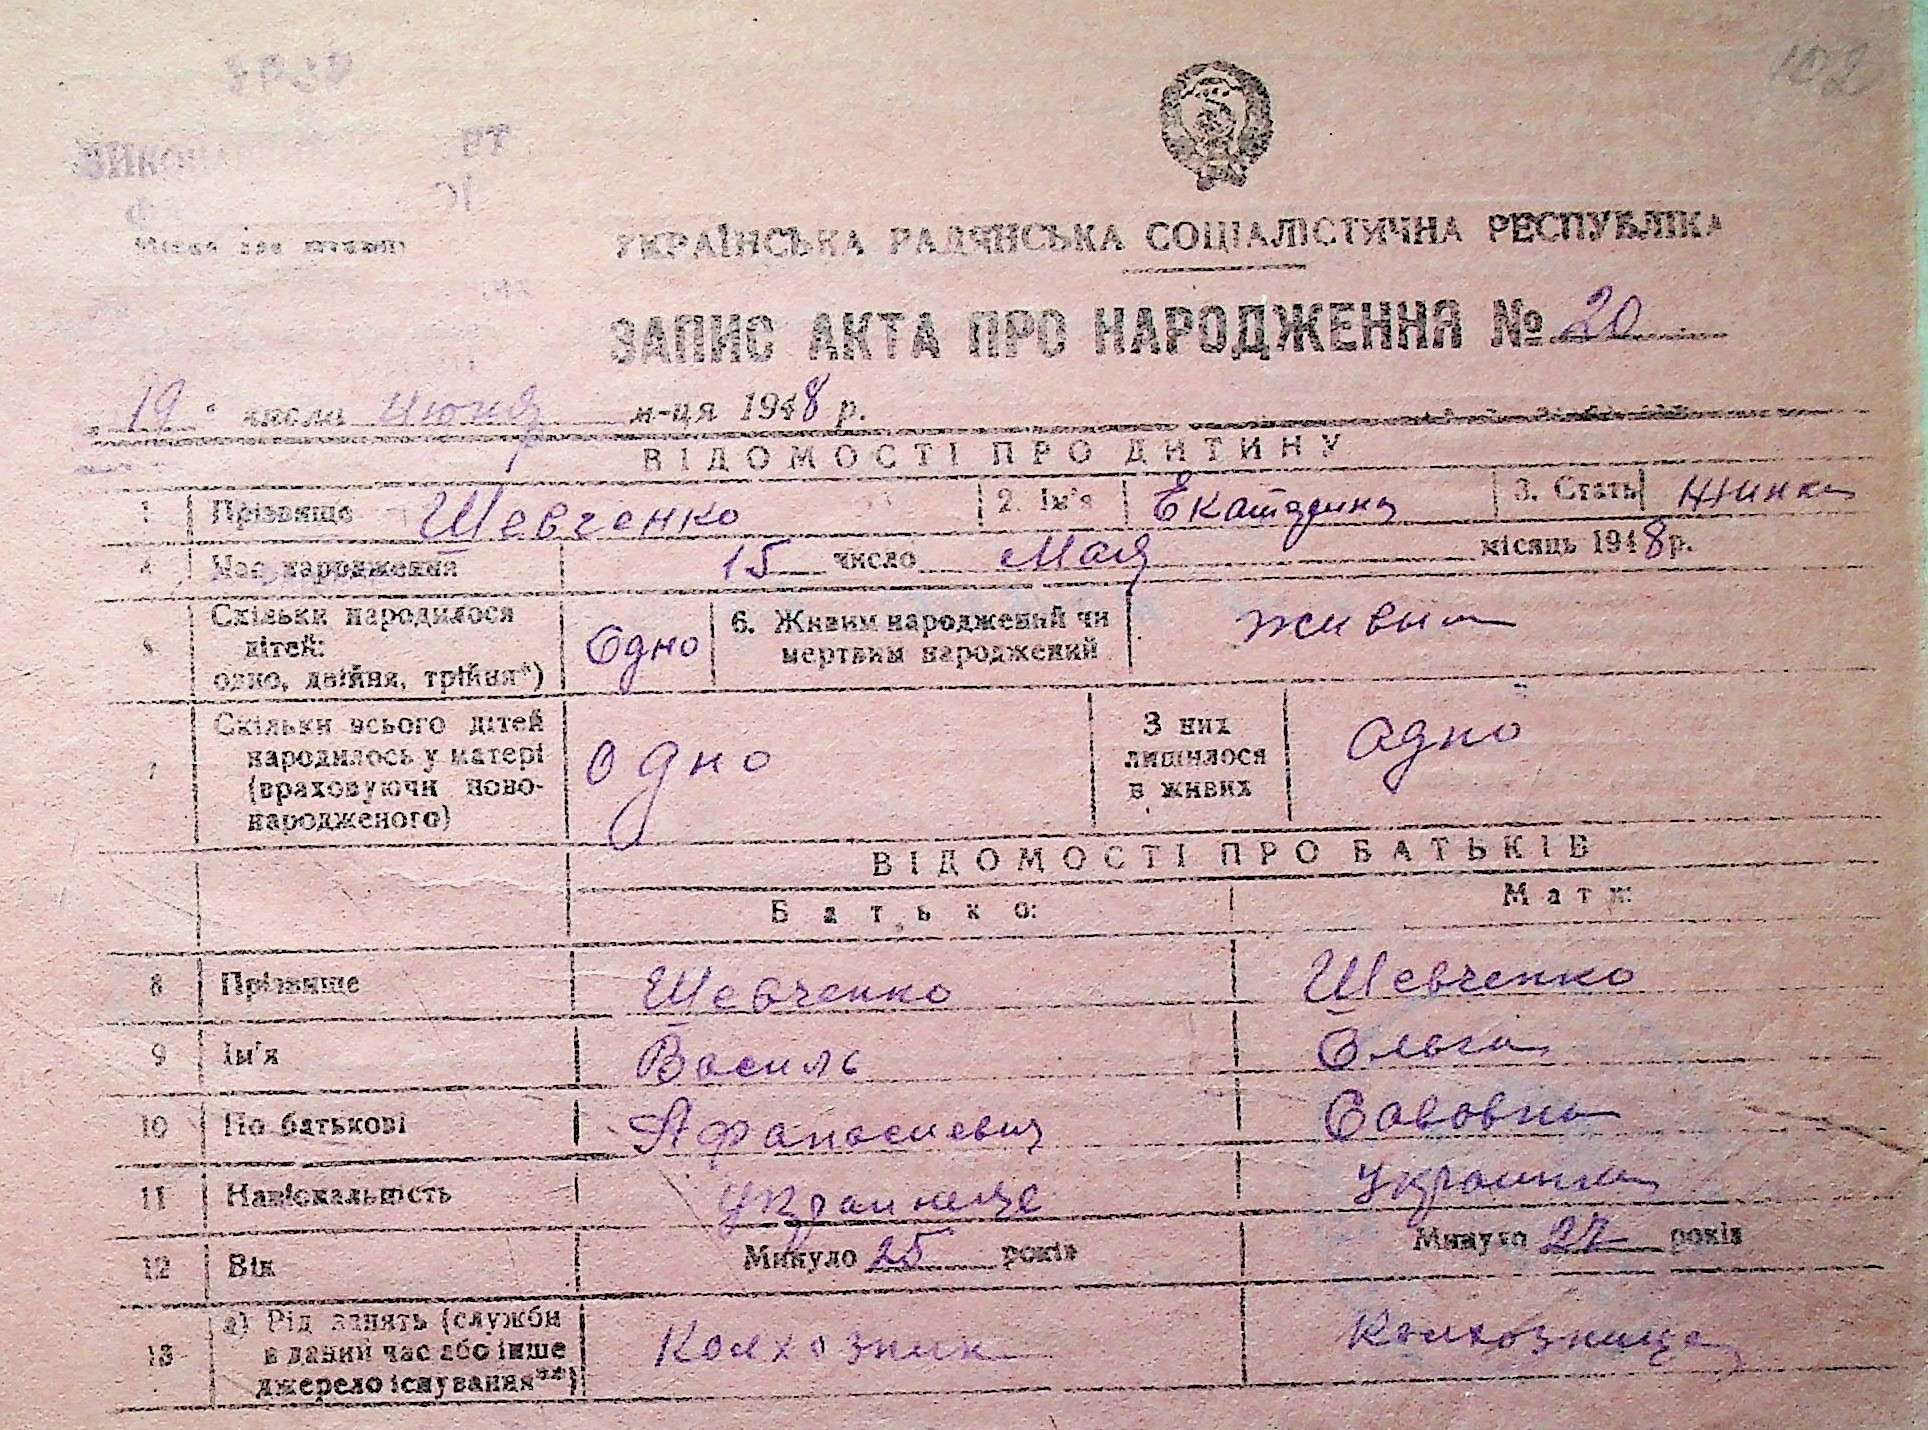 102
УКРАЇНСЬКА РАДЯНСЬКА СОЦІАЛІСТИЧНА РЕСПУБЛІКА
ЗАПИС АКТА ПРО НАРОДЖЕННЯ № 20
„19" числа июня м-ця 1948 р.
ВІДОМОСТІ ПРО ДИТИНУ
1 Прізвище Шевченко 2. Ім'я Екатерина 3. Стать
4 Час народження 15 число Мая місяць 1948 р.
5 Скільки народилося дітей: одно, двійня, трійня*) Одно 6. Живим народжений чи мертвим народжений живым
7 Скільки всього дітей народилось у матері (враховуючи новонародженого) одно З них лишилося в живих одно
ВІДОМОСТІ ПРО БАТЬКІВ
Батько: Мати:
8 Прізвище Шевченко Шевченко
9 Ім'я Василь Ольга
10 По батькові Афанасиевич Савовна
11 Національність Украинка
12 Вік Минуло 25 років Минуло 27 років
13 а) Рід занять (служби в даний час або інше джерело існування**) Колхозник Колхозница